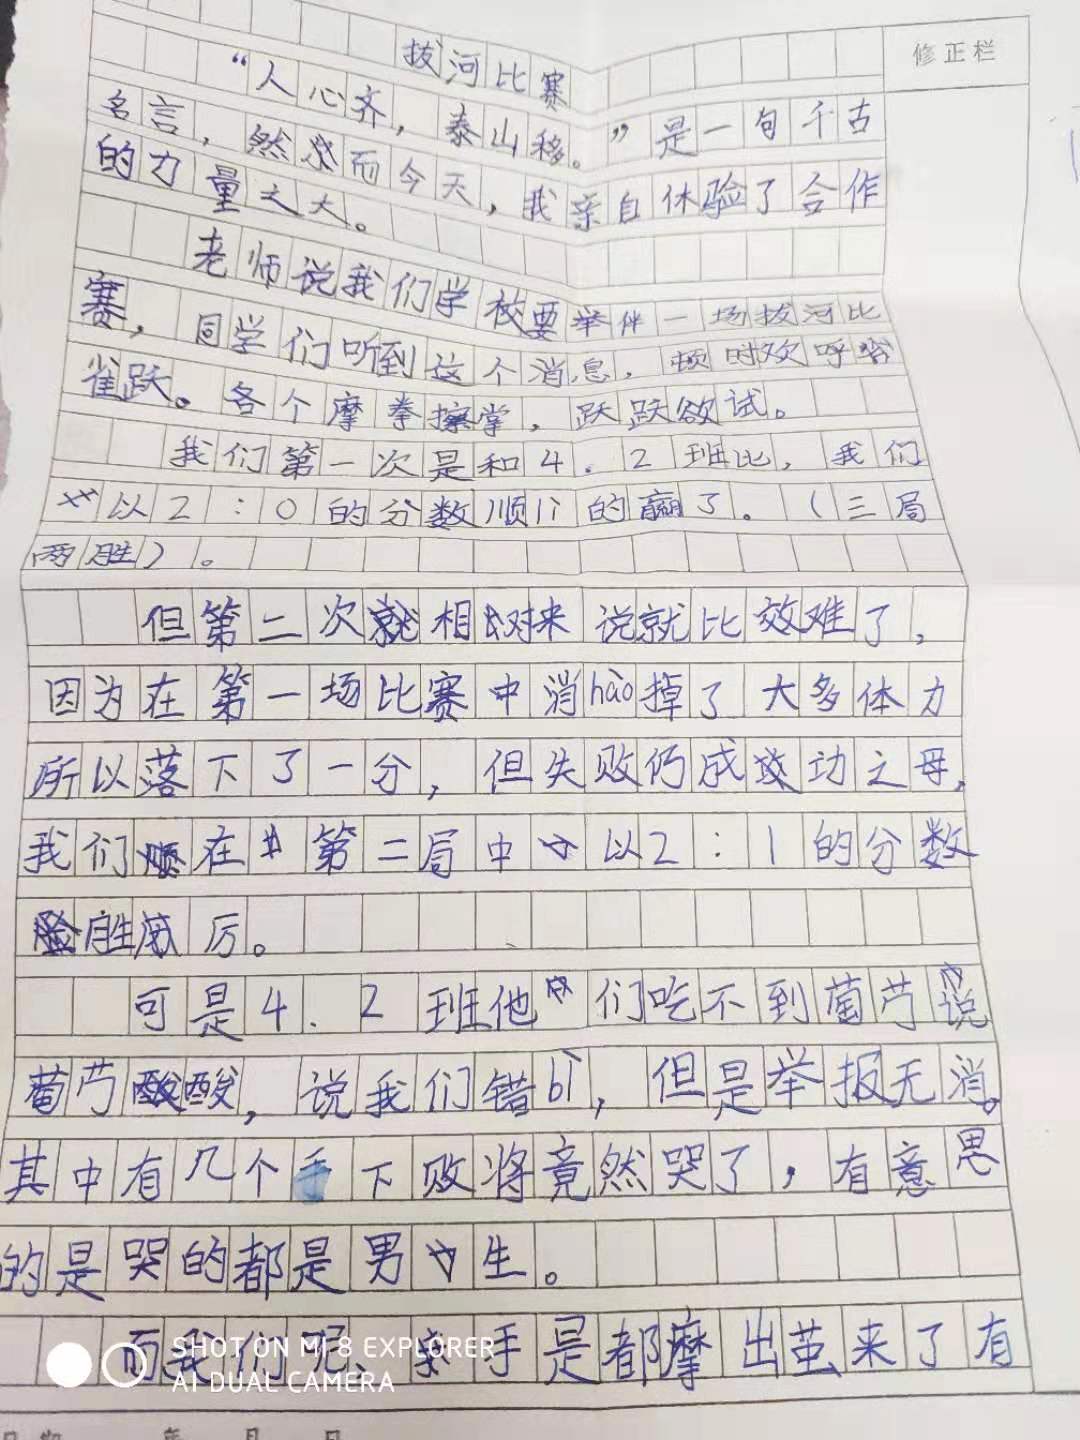 拔河比赛
修正栏
“人心齐，泰山移。”是一句千古
名言，然而今天，我亲自体验了合作
的力量之大。
老师说我们学校要举伴一场拔河比
赛，同学们听到这个消息，顿时欢呼
雀跃。各个摩拳擦掌，跃跃欲试。
我们第一次是和4.2班比，我们
以2:0的分数顺lì的赢了。（三局
两胜）。
但第二次就相对来说就比效难了，
因为在第一场比赛中消hào掉了大多体力
所以落下了一分，但失败仍成功之母，
我们在第二局中以2:1的分数
胜厉。
可是4.2班他们吃不到葡芍说
葡芍酸，说我们错bì，但是举报无消。
其中有几个手下败将竟然哭了，有意思
的是哭的都是男生。
而我们呢、手是都摩出茧来了有
SHOT ON MI 8 EXPLORER
AI DUAL CAMERA